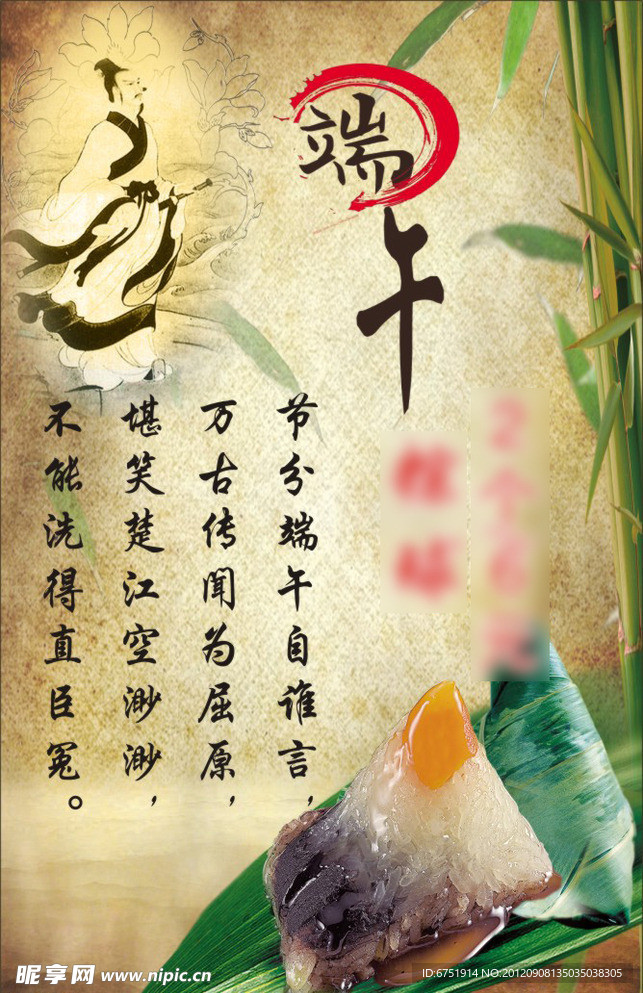 端午
节分端午自谁言，
万古传闻为屈原，
堪笑楚江空渺渺，
不能洗得直臣冤。
昵享网 www.nipic.cn
ID:6751914 NO.20120908135035038305